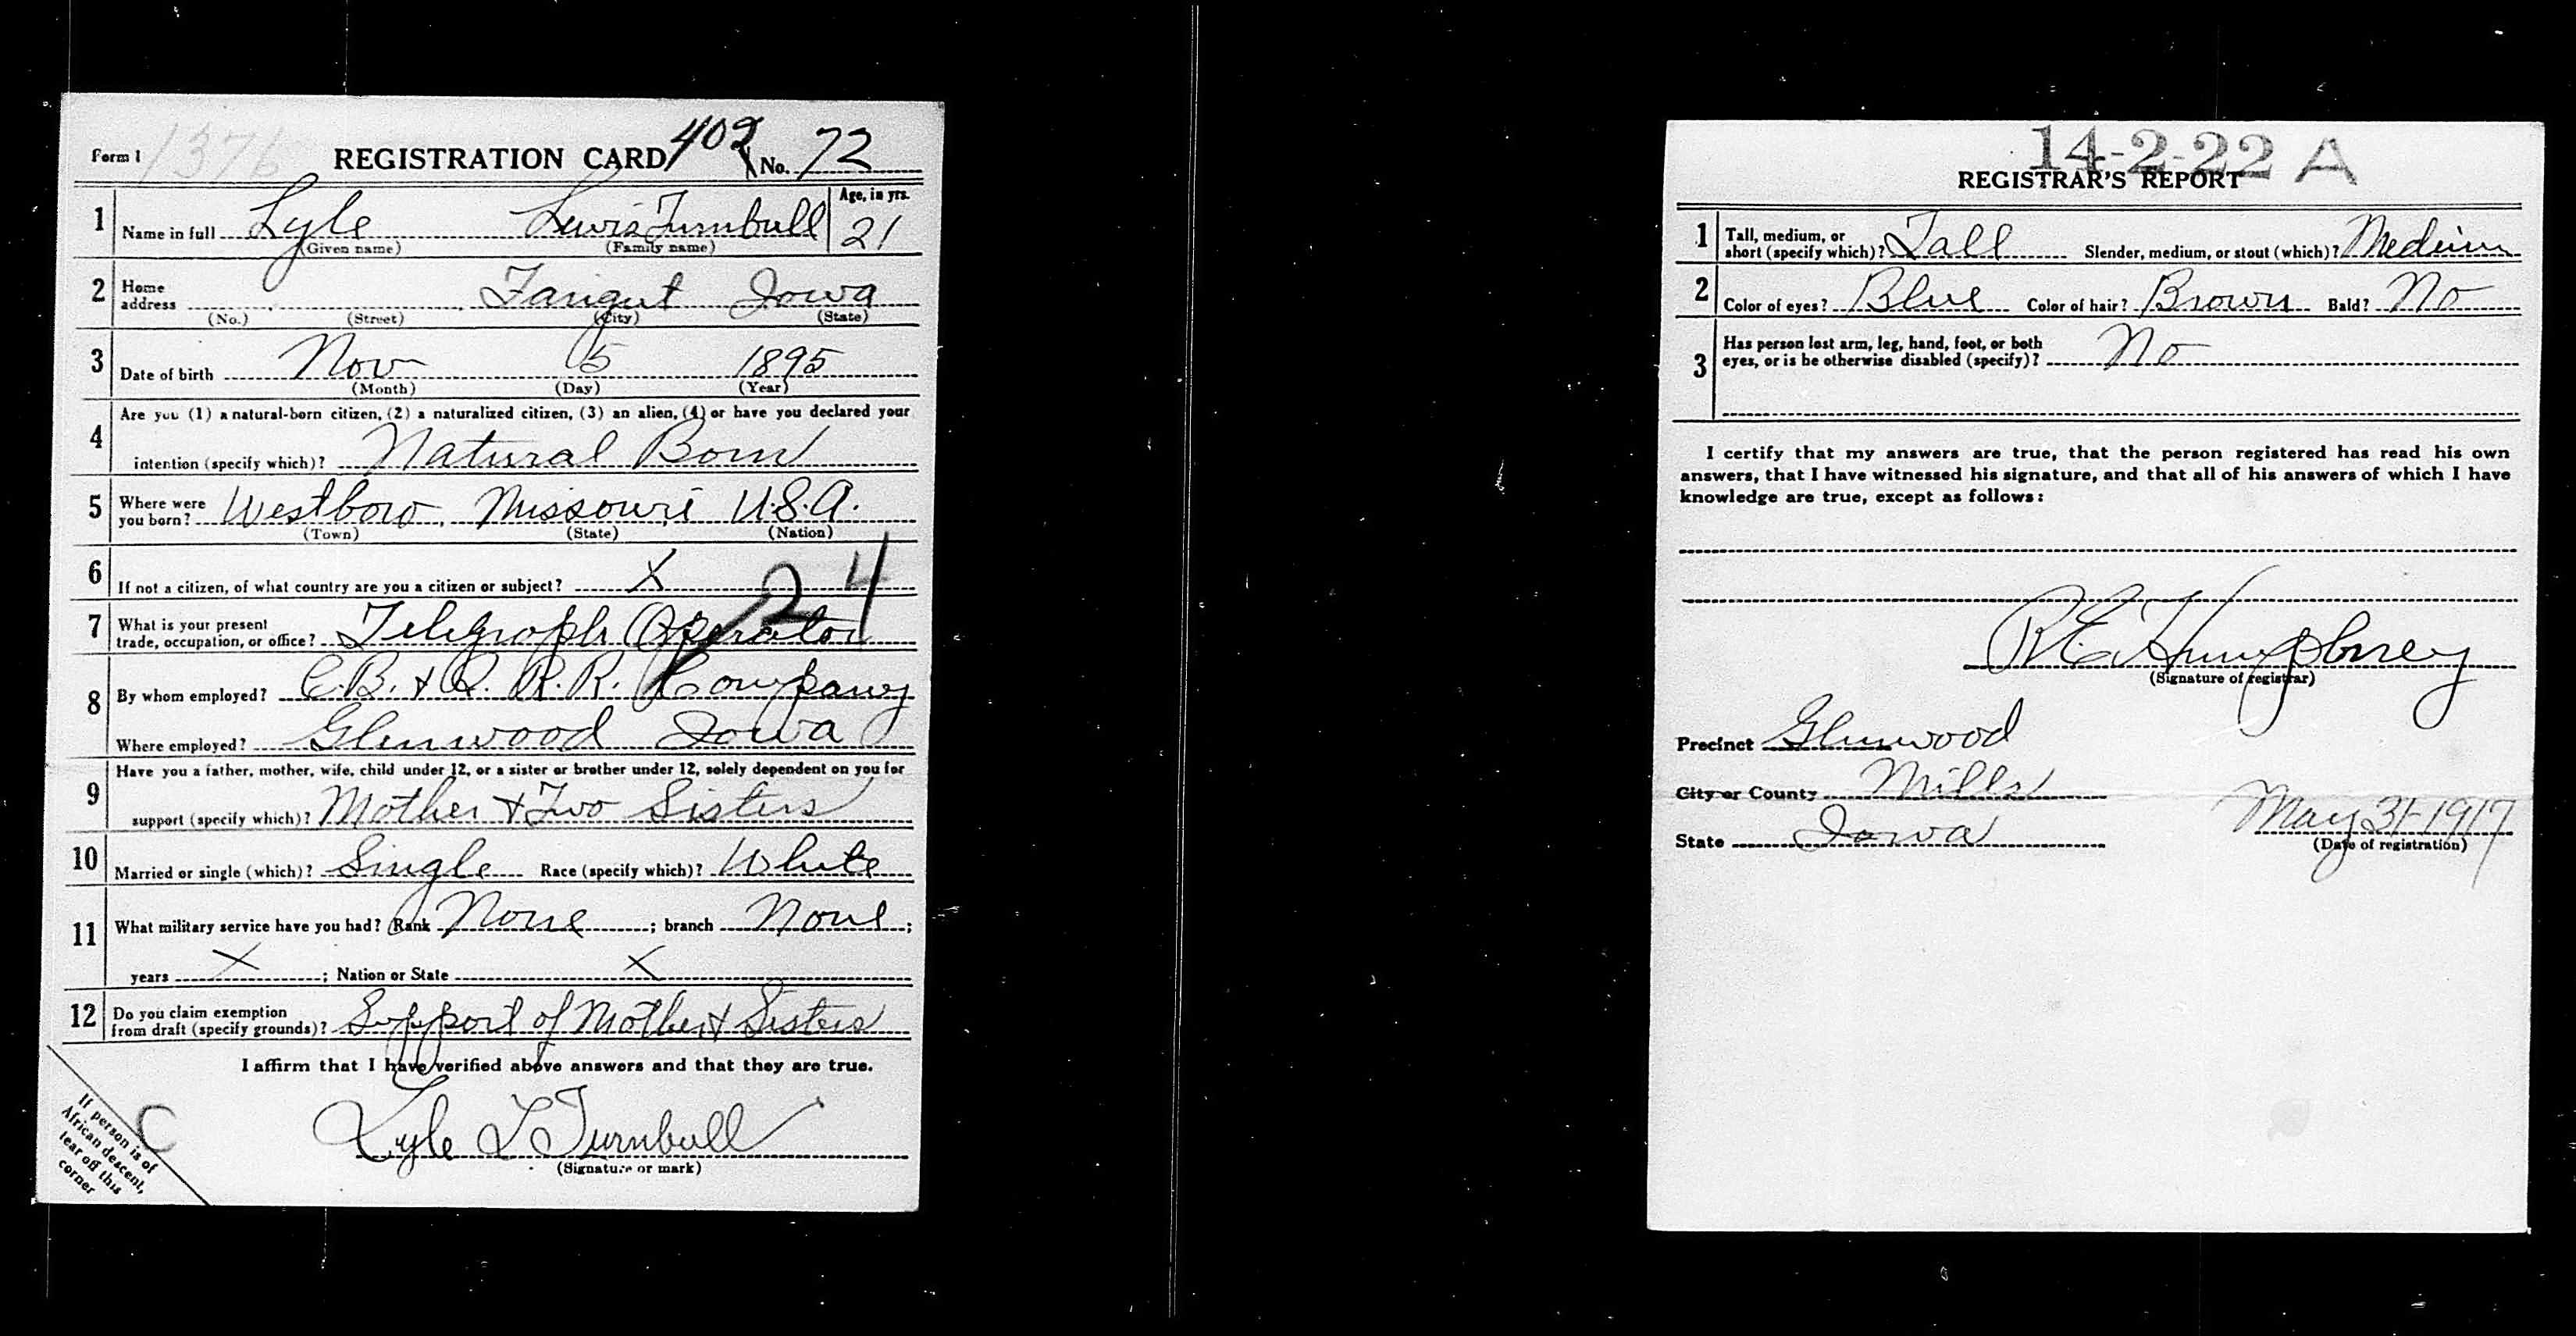 Form 1 1376 REGISTRATION CARD 409 No. 72
1 Name in full Lyle Lewis Turnbull Age, in yrs. 21
(Given name) (Family name)
2 Home address Farigut Iowa
(No.) (Street) (City) (State)
3 Date of birth Nov 5 1895
(Month) (Day) (Year)
4 Are you (1) a natural-born citizen, (2) a naturalized citizen, (3) an alien, (4) or have you declared your
intention (specify which)? Natural Born
5 Where were you born? Westboro, Missouri U.S.A.
(Town) (State) (Nation)
6 If not a citizen, of what country are you a citizen or subject? X
24
7 What is your present trade, occupation, or office? Telegraph Operator
8 By whom employed? C.B. & Q. R.R. Company
Where employed? Glenwood Iowa
9 Have you a father, mother, wife, child under 12, or a sister or brother under 12, solely dependent on you for
support (specify which)? Mother & Two Sisters
10 Married or single (which)? Single Race (specify which)? White
11 What military service have you had? Rank None ; branch None ;
years X ; Nation or State X
12 Do you claim exemption from draft (specify grounds)? Support of Mother & Sisters
I affirm that I have verified above answers and that they are true.
Lyle L Turnbull
(Signature or mark)
If person is of
African descent,
tear off this
corner
C
14-2-22 A
REGISTRAR'S REPORT
1 Tall, medium, or short (specify which)? Tall Slender, medium, or stout (which)? Medium
2 Color of eyes? Blue Color of hair? Brown Bald? No
3 Has person lost arm, leg, hand, foot, or both
eyes, or is he otherwise disabled (specify)? No
I certify that my answers are true, that the person registered has read his own
answers, that I have witnessed his signature, and that all of his answers of which I have
knowledge are true, except as follows:
R E Humphrey
(Signature of registrar)
Precinct Glenwood
City or County Mills
State Iowa May 31-1917
(Date of registration)